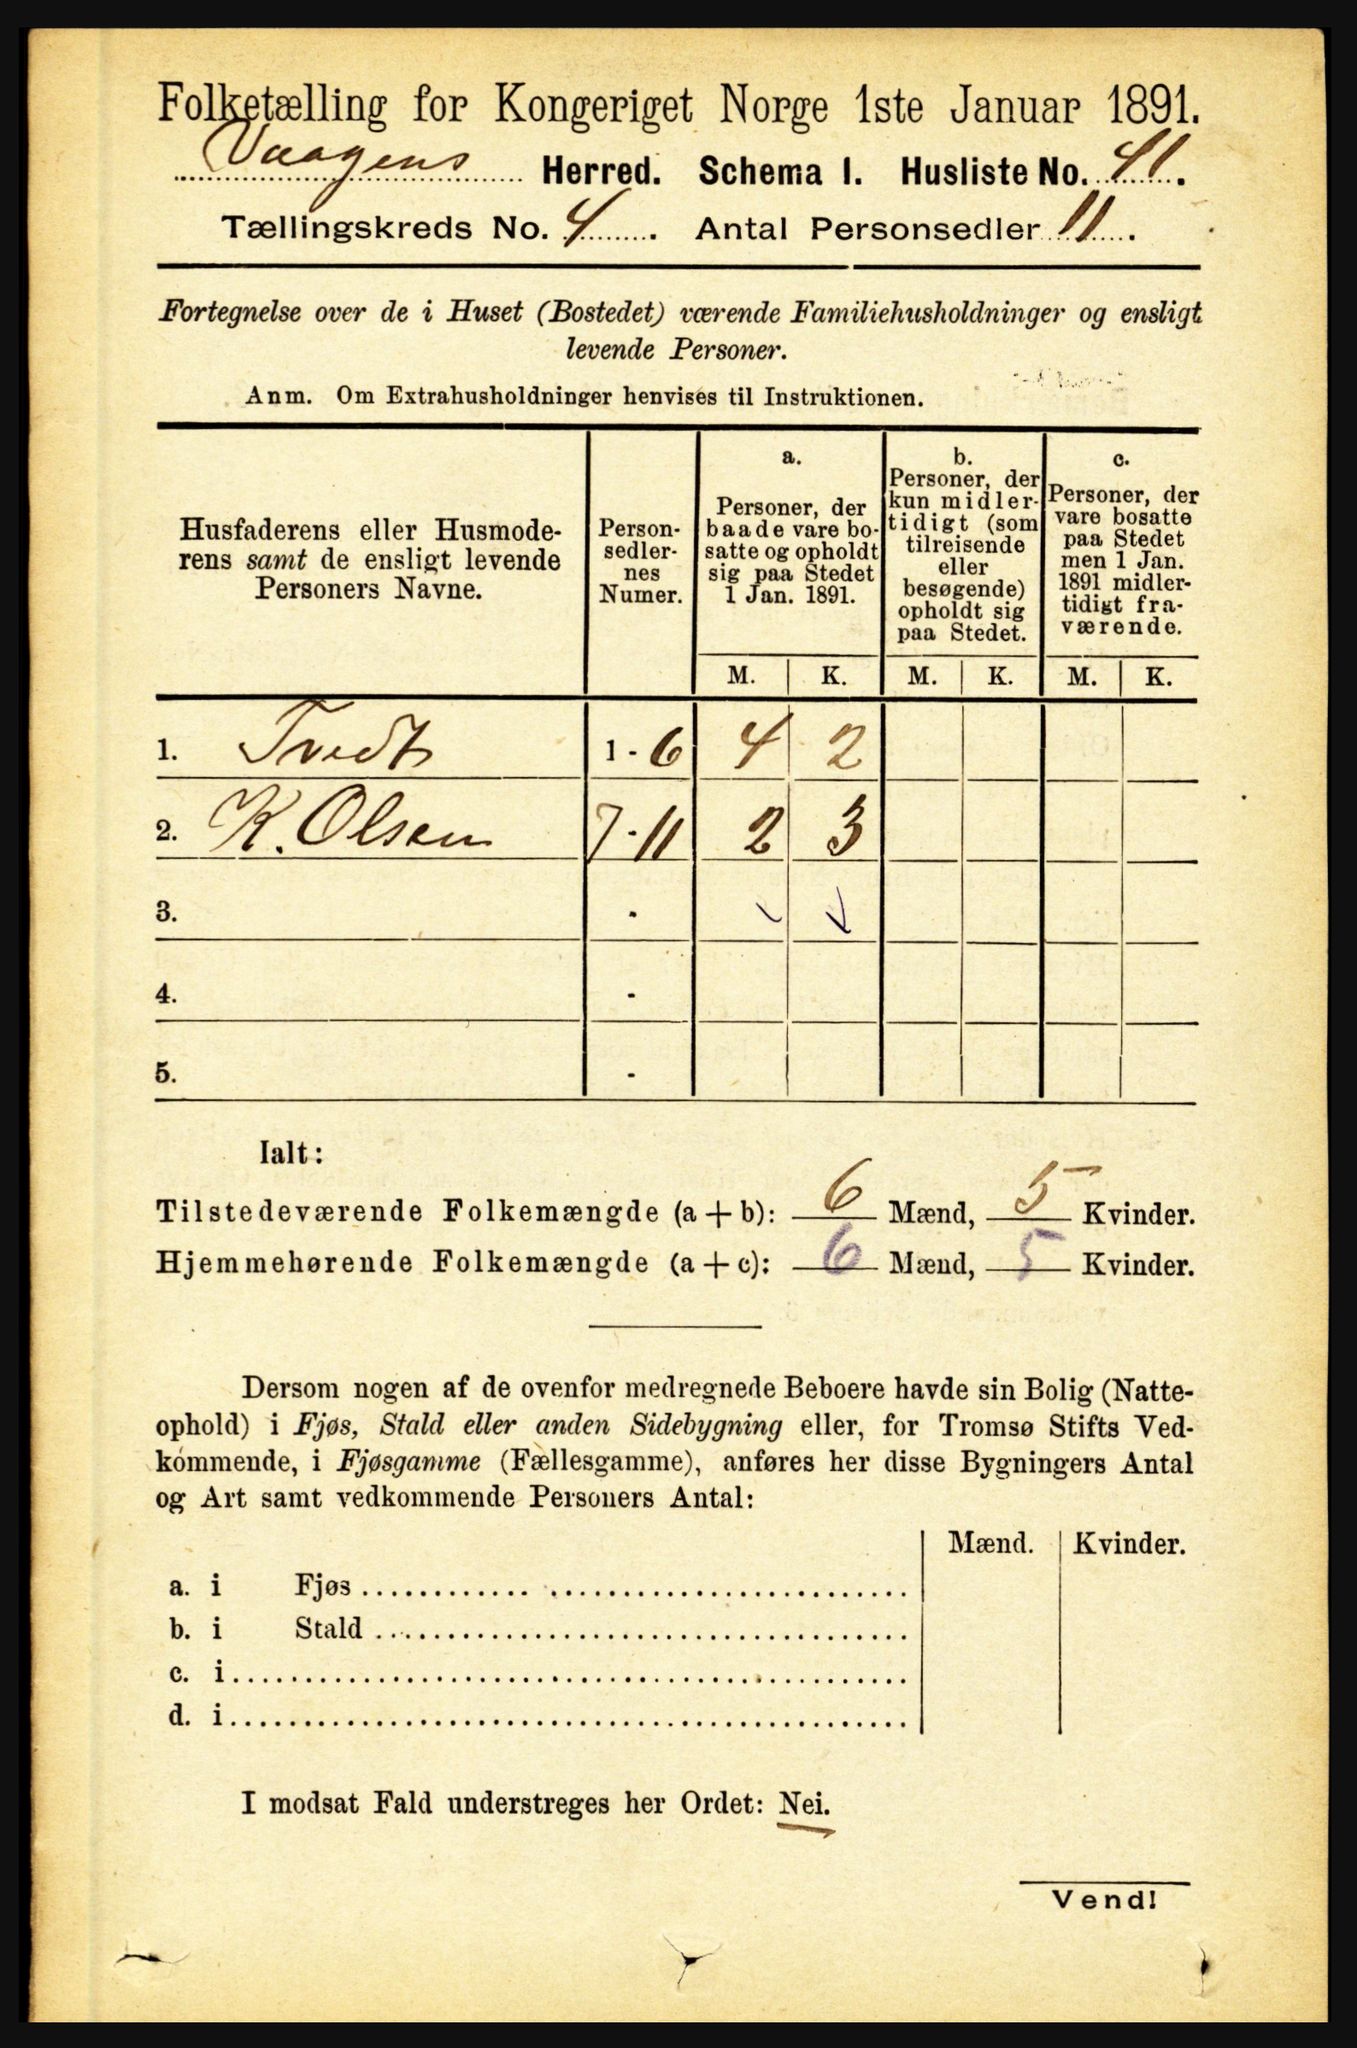 Folketælling for Kongeriget Norge 1ste Januar 1891.
Vaagens Herred. Schema I. Husliste No. 41.
Tællingskreds No. 4. Antal Personsedler 11.
Fortegnelse over de i Huset (Bostedet) værende Familiehusholdninger og ensligt
levende Personer.
Anm. Om Extrahusholdninger henvises til Instruktionen.
Husfaderens eller Husmode-
rens samt de ensligt levende
Personers Navne.
Person-
sedler-
nes
Numer.
a.
Personer, der
baade vare bo-
satte og opholdt
sig paa Stedet
1 Jan. 1891.
b.
Personer, der
kun midler-
tidigt (som
tilreisende
eller
besøgende)
opholdt sig
paa Stedet.
c.
Personer, der
vare bosatte
paa Stedet
men 1 Jan.
1891 midler-
tidigt fra-
værende.
M. K. M. K. M. K.
1. Tvedt 1 - 6 4 2
2. K. Olsen 7 - 11 2 3
3. -
4. -
5. -
Ialt:
Tilstedeværende Folkemængde (a + b): 6 Mænd, 5 Kvinder.
Hjemmehørende Folkemængde (a + c): 6 Mænd, 5 Kvinder.
Dersom nogen af de ovenfor medregnede Beboere havde sin Bolig (Natte-
ophold) i Fjøs, Stald eller anden Sidebygning eller, for Tromsø Stifts Ved-
kommende, i Fjøsgamme (Fællesgamme), anføres her disse Bygningers Antal
og Art samt vedkommende Personers Antal:
Mænd. Kvinder.
a. i Fjøs
b. i Stald
c. i
d. i
I modsat Fald understreges her Ordet: Nei.
Vend!